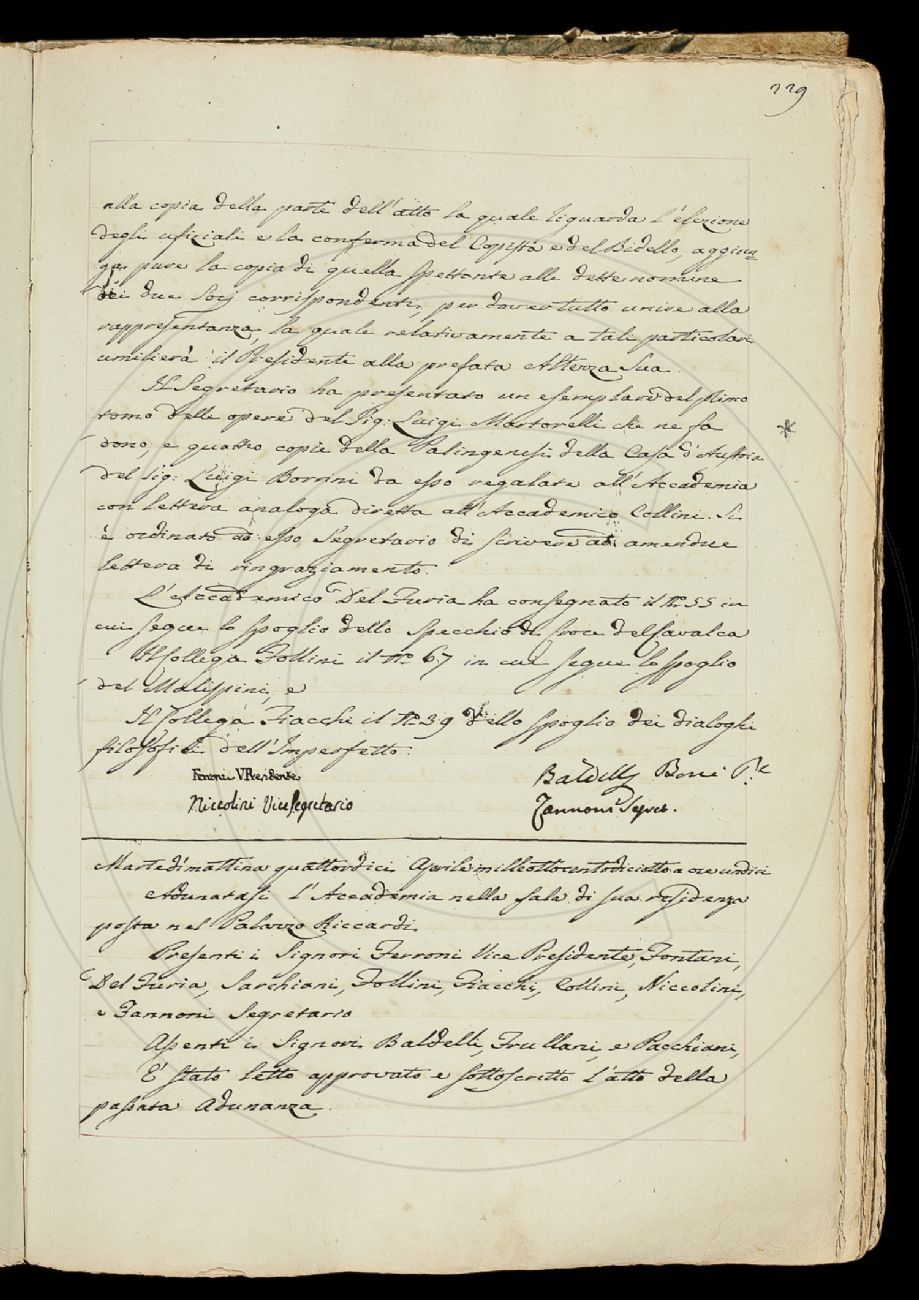 229
alla copia della parte dell'atto la quale riguarda l'elezione
degli ufiziali e la conferma del Copista e del Bidello, aggiun=
ga pure la copia di quella spettante alle dette nomine
dei due Socj corrispondenti, per dover tutto unire alla
rappresentanza, la quale relativamente a tali particolari
umilierà il Presidente alla prefata Altezza Sua.
Il Segretario ha presentato un esemplare del primo
tomo delle opere del Sig: Luigi Martorelli che ne fa
dono, e quattro copie della Palingenesi della Casa d'Austria
del Sig: Luigi Borrini da esso regalate all'Accademia
con lettera analoga diretta all'Accademico Collini. Si
è ordinato ad esso Segretario di scrivere ad amendue
lettera di ringraziamento.
L'Accademico Del Furia ha consegnato il N.° 55 in
cui segue lo spoglio dello Specchio di Croce del Cavalca
Il Collega Follini il N.° 67 in cui segue lo spoglio
del Malispini, e
Il Collega Fiacchi il N.° 39 dello spoglio dei dialoghi
filosofici dell'Imperfetto.
Ferroni V. Presidente Baldelli Boni P.te
Niccolini Vice Segretario Zannoni Segret.
Martedì mattina quattordici Aprile milleottocentodiciotto a ore undici
Adunatasi l'Accademia nella sala di sua residenza
posta nel Palazzo Riccardi.
Presenti i Signori Ferroni Vice Presidente, Fontani,
Del Furia, Sarchiani, Follini, Fiacchi, Collini, Niccolini,
e Zannoni Segretario
Assenti i Signori Baldelli, Frullani, e Pacchiani,
È stato letto approvato e sottoscritto l'atto della
passata Adunanza.